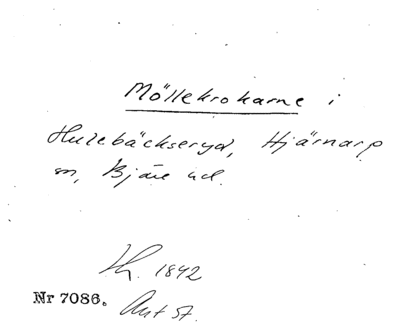 Möllekrokarne i
Hulebäckseryd, Hjärnarp
sn, Bjäre hd.
Lh. 1842
Nr 7086. Ant St.